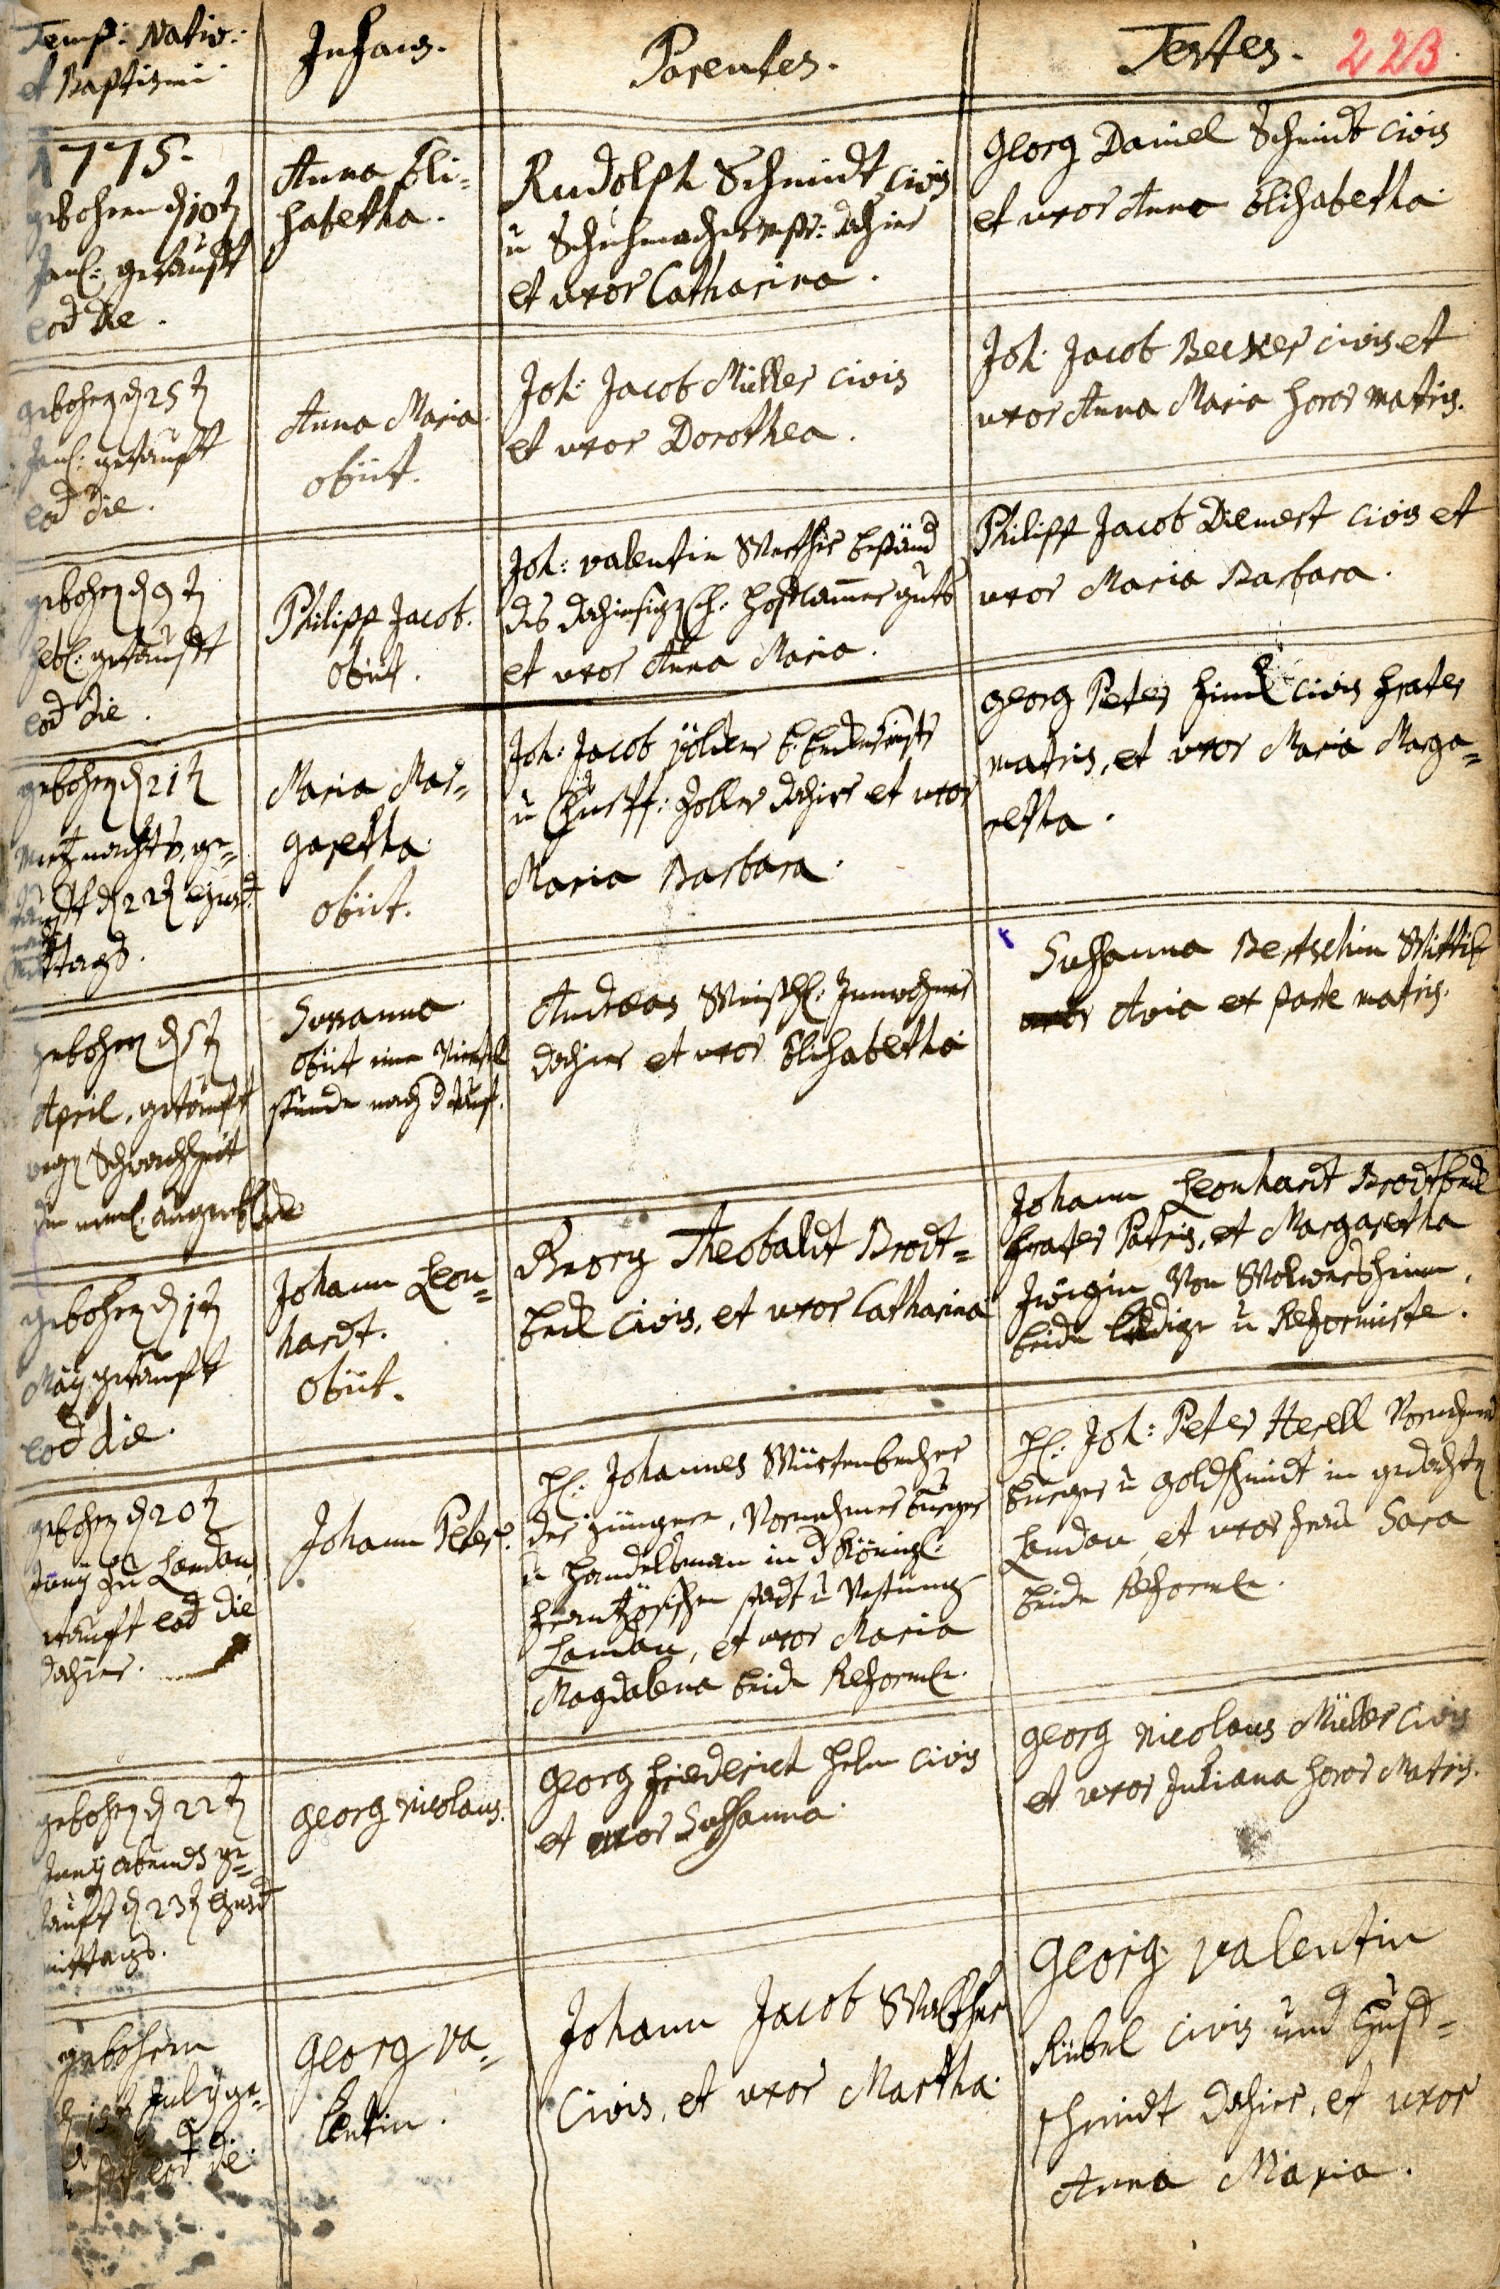 Temp: Nativ:
et Baptismi
Infans.
Parentes.
Testes.
223
1775.
gebohren d 10t
Jan: getauft
eod die.
Anna Eli-
sabetha.
Rudolph Schmidt civis
u Schuhmacher mstr: dahier
et uxor Catharina.
Georg Daniel Schmidt civis
et uxor Anna Elisabetha
gebohren d 25t
Jan: getauft
eod die.
Anna Maria
obiit.
Joh: Jacob Müller civis
et uxor Dorothea.
Joh: Jacob Becker civis et
uxor Anna Maria soror matris.
gebohren d 9t
Febr: getauft
eod die.
Philipp Jacob.
obiit.
Joh: Valentin beständ
des dahiesigen Hofkammer guts
et uxor Anna Maria.
Philipp Jacob Diemert civis et
uxor Maria Barbara.
gebohren d 21t
nachts, ge-
tauft d 22t
nach
Mittags.
Maria Mar-
garetha
obiit.
Joh: Jacob
u Zoller dahier et uxor
Maria Barbara.
Georg Peter civis frater
matris, et uxor Maria Marga-
retha.
gebohren d 5t
April, getauft
wegen Schwachheit
den augenblick
Susanna
obiit eine Viertel
stunde nach d tauf.
Andreas Innwohner
dahier et uxor Elisabetha
Susanna Bertschin Wittib
Avia ex parte matris.
gebohren d 1t
May getauft
eod die.
Johann Leon-
hardt.
obiit.
Georg Theobaldt Brodt-
beck civis, et uxor Catharina
Johann Leonhardt Brodtbeck
frater Patris, et Margaretha
Jörgin von
beide ledige u Reformirte.
gebohren d 20t
Juny zu Landau,
getauft eod die
dahier.
Johann Peter.
H: Johannes Wüstenbecher
der jüngere, Vornehmer burger
u Handelsman in d Königl:
frantzösischen stadt u Vestung
Landau, et uxor Maria
Magdalena beide Reform.
H: Joh: Peter Herell Vornehmer
burger u goldschmidt in gedachten
Landau, et uxor frau Sara
beide Reform.
gebohren d 22t
Juny abends ge-
tauft d 23t
mittags.
Georg Nicolaus.
Georg Friederich Helm civis
et uxor Susanna.
Georg Nicolaus Müller civis
et uxor Juliana soror Matris.
gebohren
July ge-
eod die.
Georg Va-
lentin.
Johann Jacob Walther
Civis, et uxor Martha.
Georg Valentin
Kübel civis und Huf-
schmidt dahier, et uxor
Anna Maria.